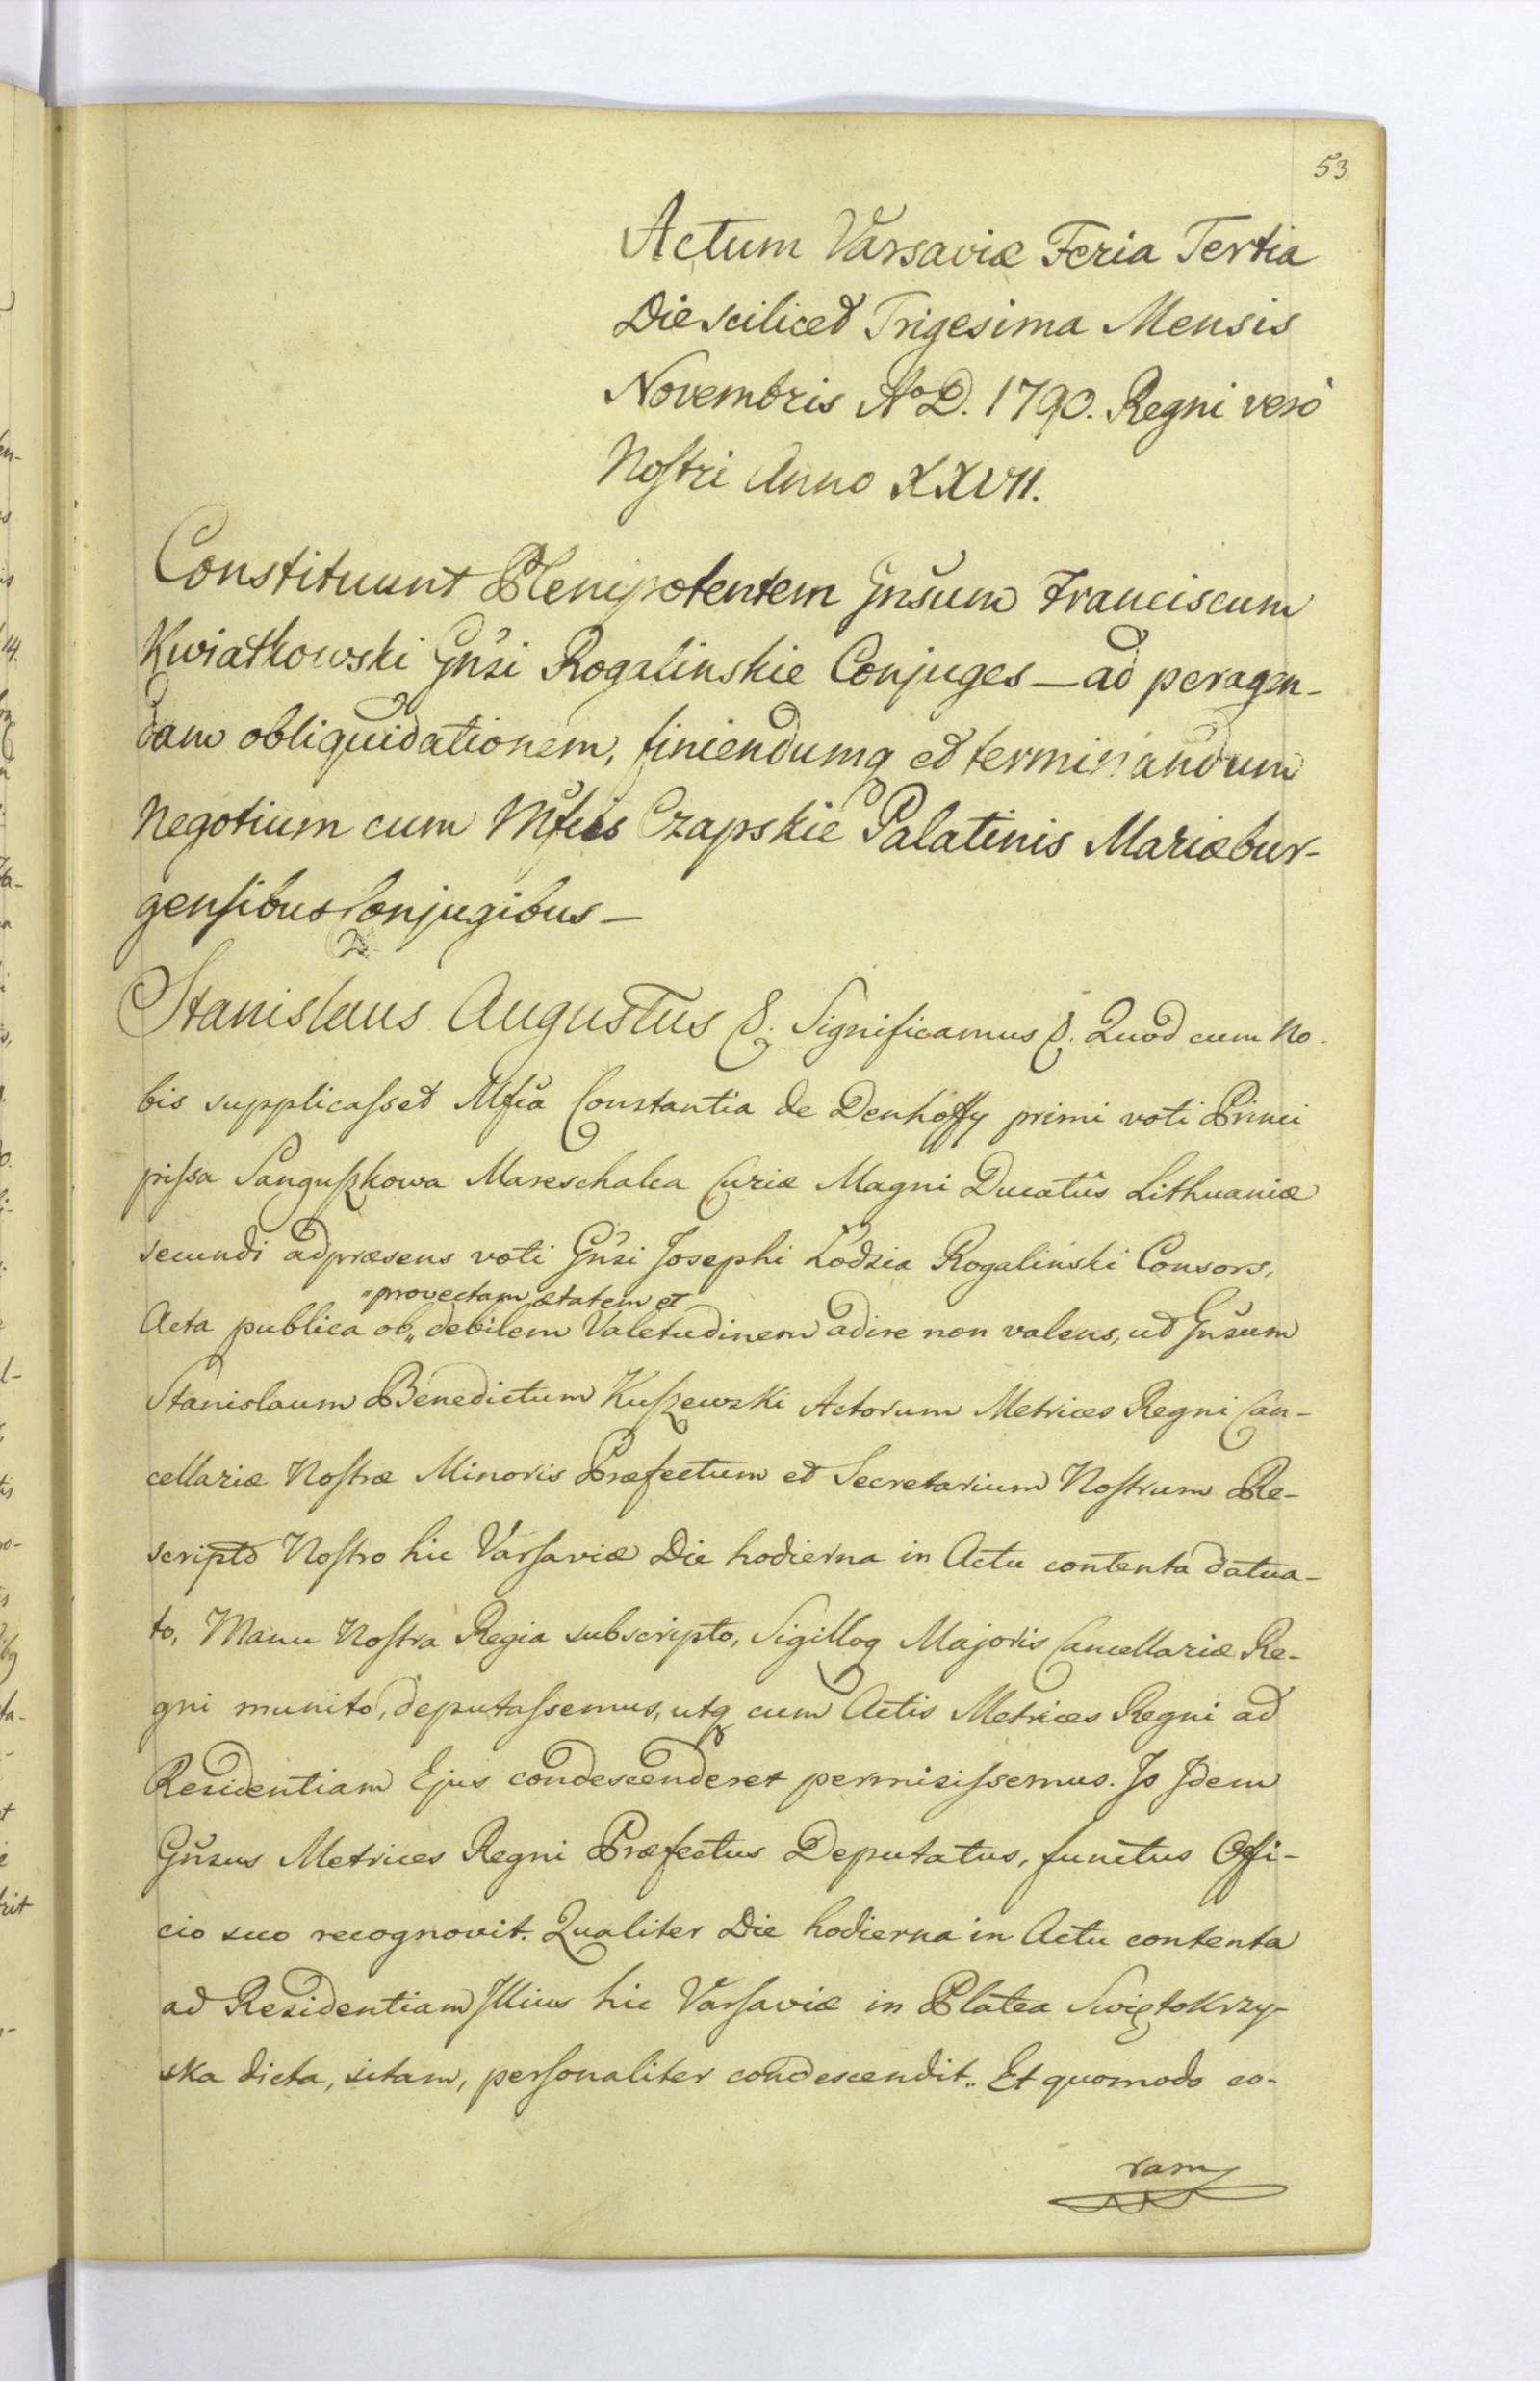 53.
Actum Varsaviæ Feria Tertia
Die scilicet Trigesima Mensis
Novembris Aº D. 1790. Regni verò
Nostri Anno XXVII.
Constituunt Plenipotentem Gnsum Franciscum
Kwiatkowski Gnsi Rogalinskie Conjuges — ad peragen-
dam obliquidationem, finiendumq et terminandum
Negotium cum Mfcis Czapskie Palatinis Mariæbur-
gensibus Conjugibus —
Stanislaus Augustus &. Significamus &. Quod cum No-
bis supplicasset Mfca Constantia de Denhoffy primi voti Princi
pissa Sanguszkowa Mareschalca Curiæ Magni Ducatûs Lithuaniæ
secundi adpræsens voti Gnsi Josephi Łodzia Rogaliński Consors,
"provectam ætatem et
Acta publica ob„ debilem Valetudinem adire non valens, ut Gnsum
Stanislaum Benedictum Kuszewski Actorum Metrices Regni Can-
cellariæ Nostræ Minoris Præfectum et Secretarium Nostrum Re-
scripto Nostro hic Varsaviæ Die hodierna in Actu contenta datua-
to, Manu Nostra Regia subscripto, Sigilloq Majoris Cancellariæ Re-
gni munito, deputassemus, utq cum Actis Metrices Regni ad
Residentiam Ejus condescenderet permisissemus. Is Idem
Gnsus Metrices Regni Præfectus Deputatus, functus Offi-
cio suo recognovit. Qualiter Die hodierna in Actu contenta
ad Residentiam Illius hic Varsaviæ in Platea Swiętokrzy-
ska dicta, sitam, personaliter condescendit. Et quomodo co-
ram